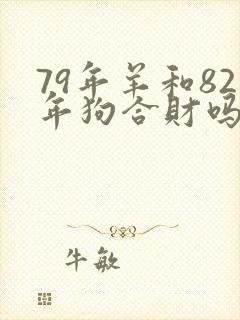 79年羊和82
年狗合財吗
牛敏